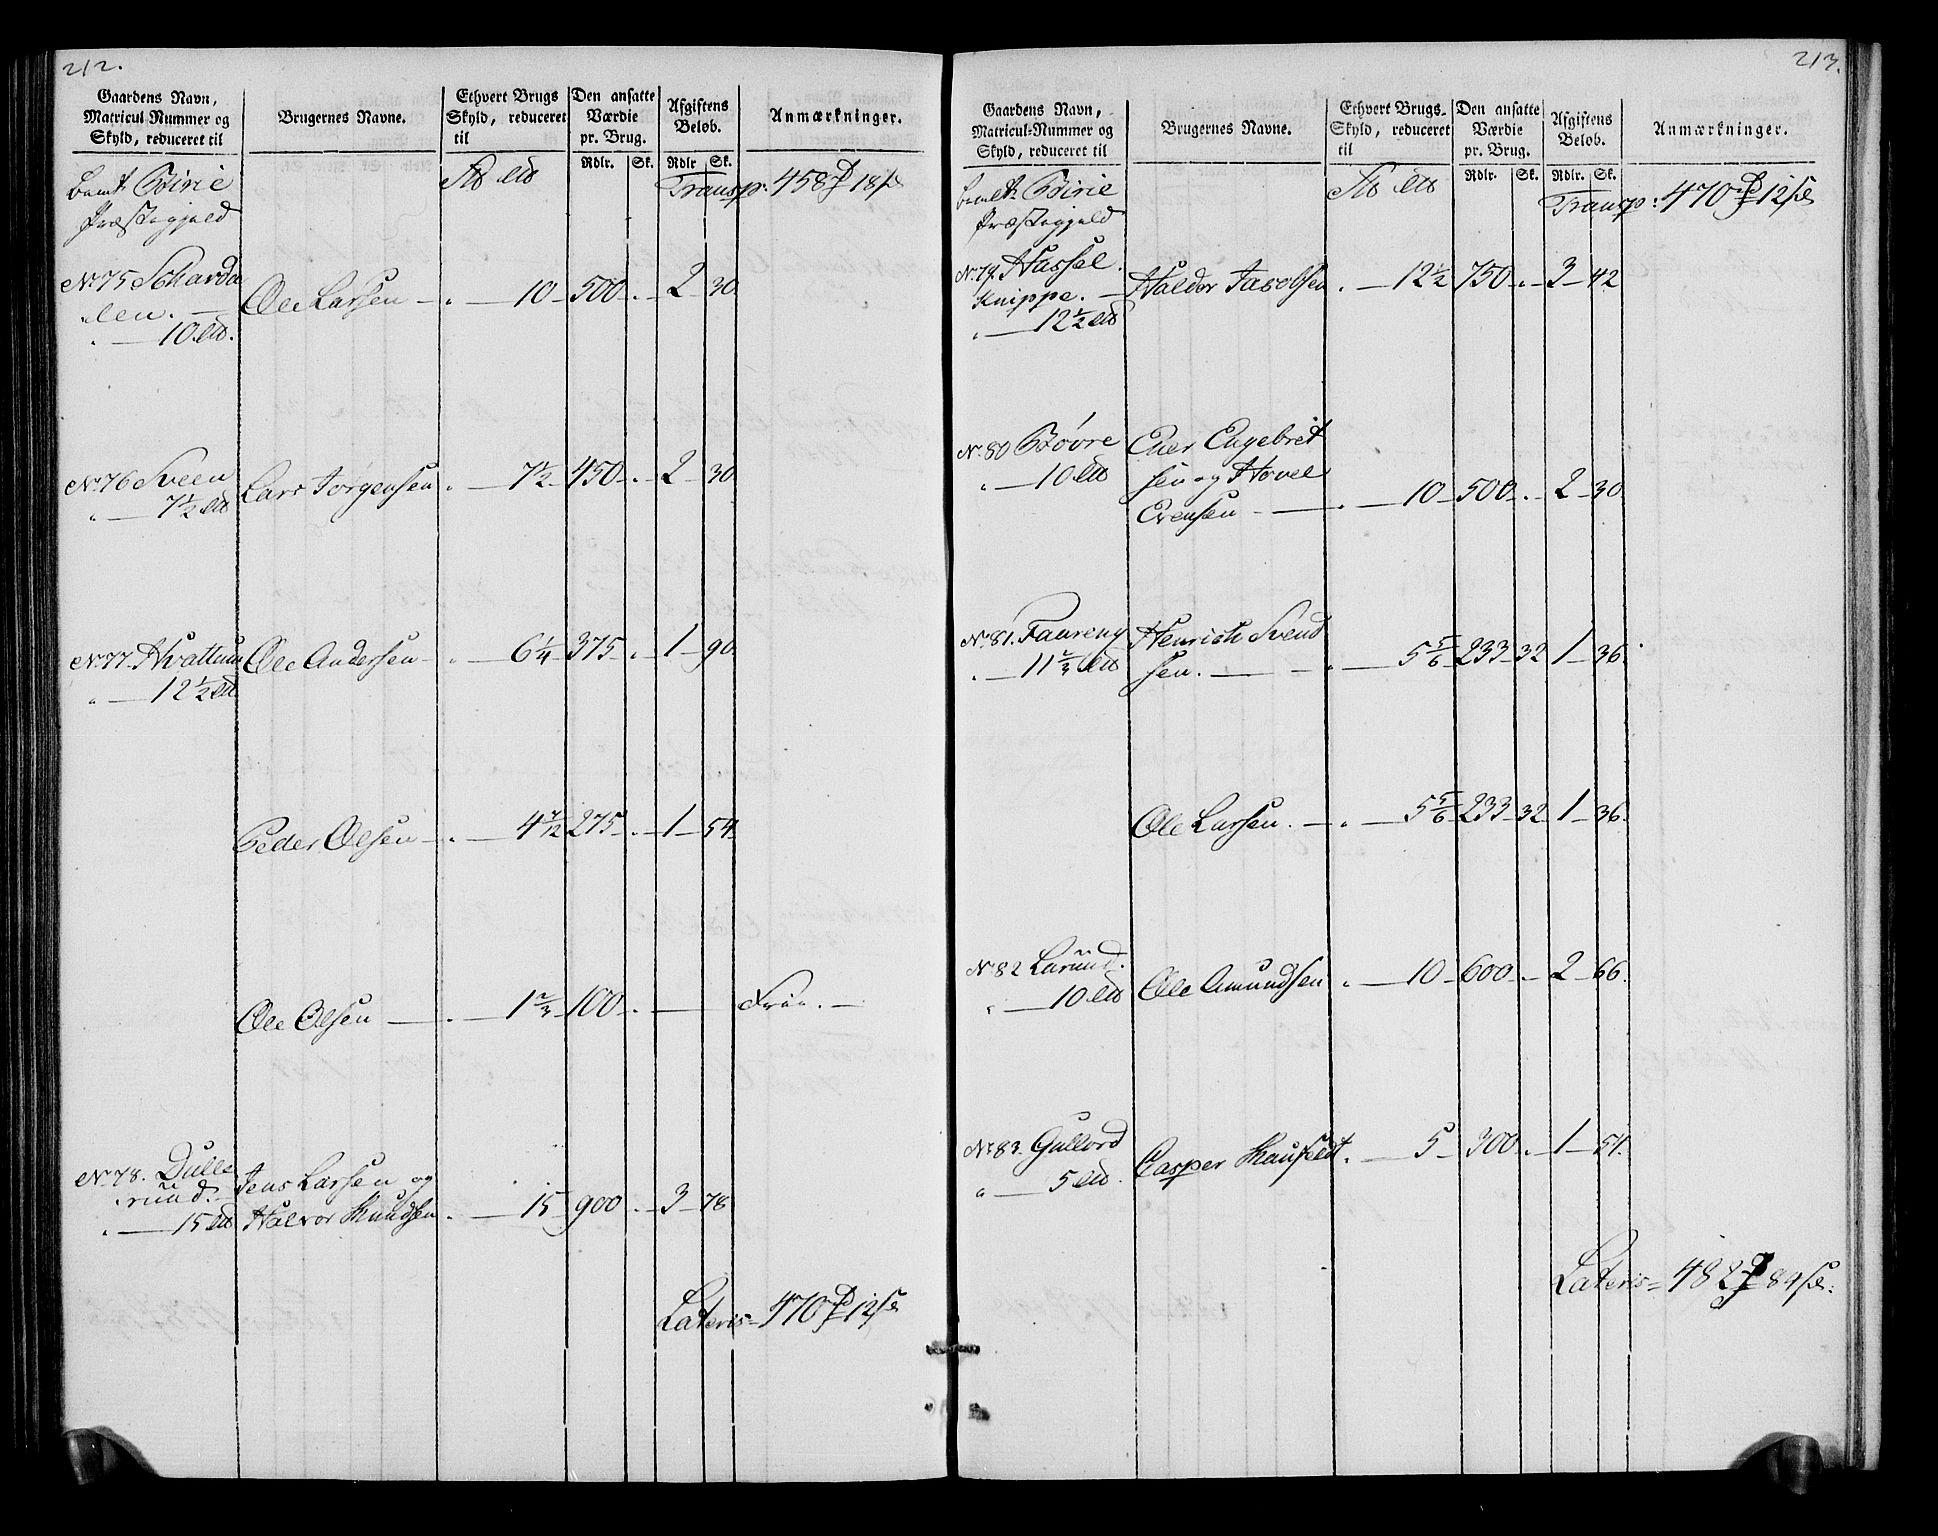 212.
Gaardens Navn, Matricul Nummer og Skyld, reduceret til | Brugernes Navne. | Ethvert Brugs Skyld, reduceret til | Den ansatte Værdie pr. Brug. Rdlr. Sk. | Afgiftens Beløb. Rdlr Sk. | Anmærkninger.
Birie Præstegjeld | Transp: 458 18
No 75 Scharda
len. 10 | Ole Larsen | 10 | 500 | 2 30
No 76 Sveen 7 1/2 | Lars Jörgensen | 7 1/2 | 450 | 2 30
No 77 Hvattum 12 1/2 | Ole Andersen | 6 1/4 | 375 | 1 90
Peder Olsen | 4 7/12 | 275 | 1 54
Ole Olsen | 1 2/3 | 100 | Frie.
No 78. Dulle
rúùd. | Jens Larsen og
15 | Halvor Knudsen | 15 | 900 | 3 78
Lateris 470 12
213.
Gaardens Navn, Matricul-Nummer og Skyld, reduceret til | Brugernes Navne. | Ethvert Brugs-Skyld, reduceret til | Den ansatte Værdie pr. Brug. Rdlr. Sk. | Afgiftens Beløb. Rdlr. Sk. | Anmærkninger.
Birie Præstegjeld | Transp: 470 12
No 79. Hassel
Knippe. 12 1/2 | Haldor Jacobsen | 12 1/2 | 750 | 3 42
No 80 Bövre | Ener Engebret
10 | sen og Hovel
Evensen | 10 | 500 | 2 30
No 81. Faureng | Henrich Svend
11 2/3 | sen. | 5 5/6 | 233 32 | 1 36
Ole Larsen. | 5 5/6 | 233 32 | 1 36
No 82 Larúnd. 10 | Ole Amundsen | 10 | 600 | 2 66
No 83. Gullord 5 | Casper | 5 | 300 | 1 54
Lateris 482 84